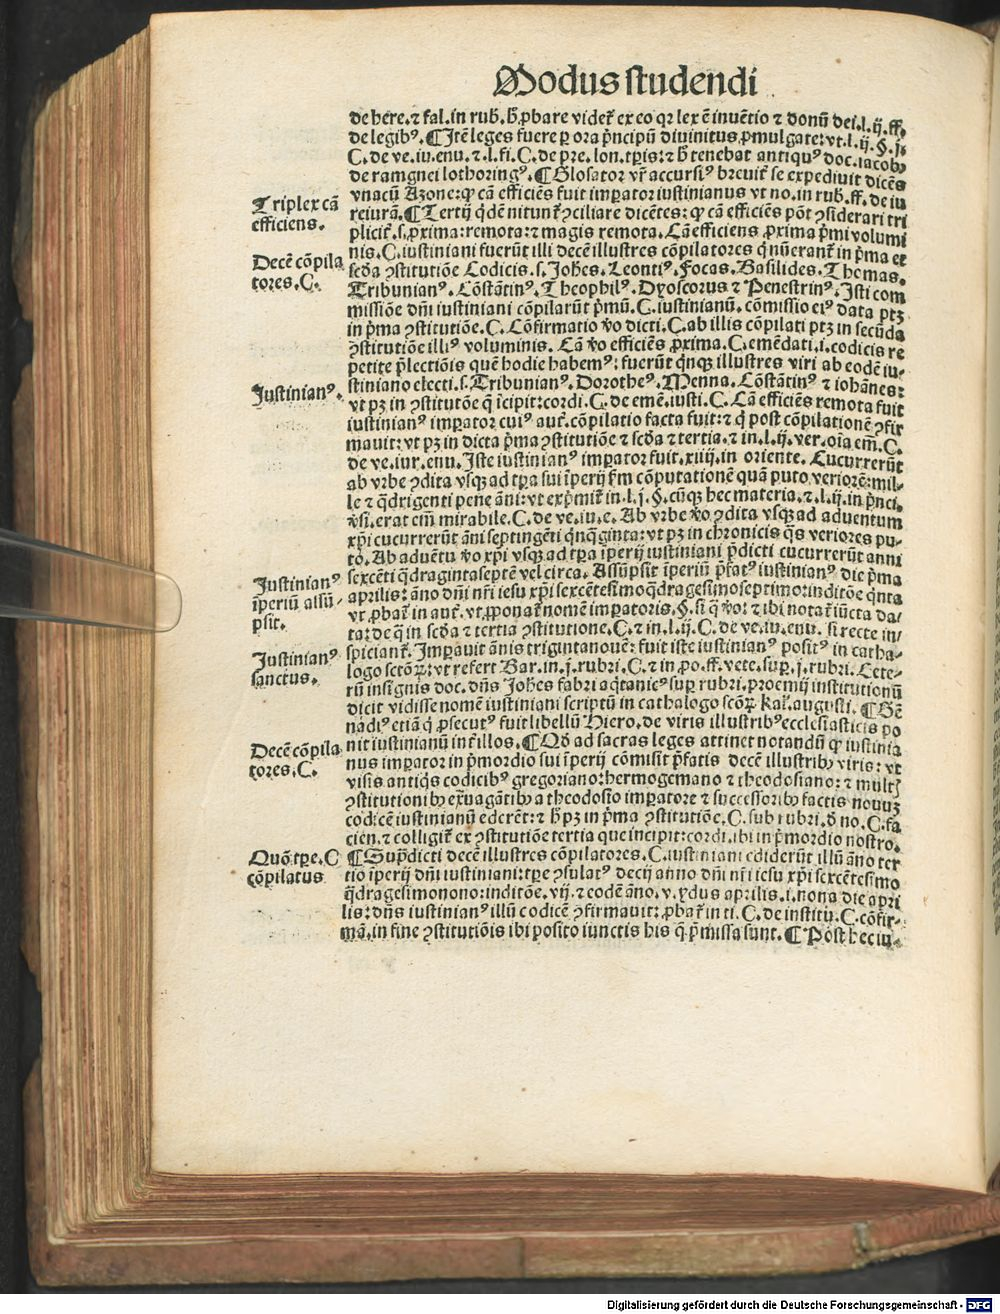 Modus studendi
de here. ⁊ fal. in rub. h̄ ꝓbare videt᷑ ex eo qꝛ lex ē inuētio ⁊ donū dei. l. ij. ff.
de legibꝰ. ¶ Itē leges fuere ꝑ ora prīcipū diuinitus ꝓmulgate: vt. l. ij. §. j.
C. de ve. iu. enu. ⁊. l. fi. C. de pre. lon. tp̄is: ⁊ h̄ tenebat antiquꝰ doc. iacobꝰ
de ramgnei lothoringꝰ. ¶ Glosator vr̄ accursiꝰ breuit᷑ se expediuit dicēs
vnacū Azone: ꝙ cā efficiēs fuit imꝑator iustinianus vt no. in rub. ff. de iu
Triplex cā
efficiens.
reiurā. ¶ Tertij q̄dē nitunt᷑ ꝯciliare dicētes: ꝙ cā efficiēs pōt ꝯsiderari tri
plicit᷑. s. ꝓxima: remota: ⁊ magis remota. Cā efficiens ꝓxima p̄mi volumi
nis. C. iustiniani fuerūt illi decē illustres cōpilatores q̄ nūerant᷑ in p̄ma et
Decē cōpila
tores. C.
scd̄a ꝯstitutiōe Codicis. s. Joh̄es. Leontiꝰ. Focas. Basilides. Thomas.
Tribunianꝰ. Cōstātinꝰ. Theophilꝰ. Dyoscorus ⁊ Penestrinꝰ. Isti com
missiōe dn̄i iustiniani cōpilarūt p̄mū. C. iustinianū. cōmissio eiꝰ data ptꝫ
in p̄ma ꝯstitutiōe. C. Cōfirmatio v̄o dicti. C. ab illis cōpilati ptꝫ in secūda
ꝯstitutiōe illiꝰ voluminis. Cā v̄o efficiēs ꝓxima. C. emēdati. i. codicis re
petite p̄lectiōis quē hodie habemꝰ: fuerūt qnqꝫ illustres viri ab eodē iu-
Justinianꝰ.
stiniano electi. s. Tribunianꝰ. Dorotheꝰ. Menna. Cōstātinꝰ ⁊ iohānes:
vt pꝫ in ꝯstitutōe q̄ īcipit: cordi. C. de emē. iusti. C. Cā efficiēs remota fuit
iustinianꝰ imꝑator cuiꝰ auc̄t. cōpilatio facta fuit: ⁊ q̄ post cōpilationē ꝯfir
mauit: vt pꝫ in dicta p̄ma ꝯstitutiōe ⁊ scd̄a ⁊ tertia. ⁊ in. l. ij. ver. oīa em̄. C.
de ve. iur. enu. Iste iustinianꝰ imꝑator fuit. xiiij. in oriente. Cucurrerūt
ab vrbe ꝯdita vsqꝫ ad tꝑa sui īperij fm̄ cōputationē quā puto veriorē: mil-
le ⁊ q̄drigenti pene āni: vt exp̄mit᷑ in. l. j. §. cūqꝫ hec materia. ⁊. l. ij. in prīci.
v̄si. erat em̄ mirabile. C. de ve. iu. e. Ab vrbe v̄o ꝯdita vsqꝫ ad aduentum
xp̄i cucurrerūt āni septingēti qnq̄ginta: vt pꝫ in chronicis q̄s veriores pu-
to. Ab aduētu v̄o xp̄i vsqꝫ ad tꝑa īperij iustiniani p̄dicti cucurrerūt anni
Justinianꝰ
īperiū assū-
psit.
sexcēti q̄dragintaseptē vel circa. Assūpsit īperiū p̄fatꝰ iustinianꝰ die p̄ma
aprilis: āno dn̄i nr̄i iesu xp̄i sexcētesimoq̄dragesimoseptimo: inditōe qnta
vt ꝓbat᷑ in aut̄. vt p̄ponat᷑ nomē imꝑatoris. §. si q̄ v̄o: ⁊ ibi notat᷑ iūcta da-
ta: de q̄ in scd̄a ⁊ tertia ꝯstitutione. C. ⁊ in. l. ij. C. de ve. iu. enu. si recte in-
Justinianꝰ
sanctus.
spiciant᷑. Imꝑauit ānis trigintanouē: fuit iste iustinianꝰ positꝰ in catha-
logo sctōꝝ: vt refert Bar. in. j. rubri. C. ⁊ in ꝓ. ff. vete. suꝑ. j. rubri. Cete-
rū insignis doc. dn̄s Joh̄es fabri aq̄tanicꝰ suꝑ rubri. proemij institutionū
dicit vidisse nomē iustiniani scriptū in cathalogo scōꝝ kal̄. augusti. ¶ Gē
nadiꝰ etiā q̄ ꝓsecutꝰ fuit libellū Hiero. de viris illustribꝰ ecclesiasticis po
Decē cōpila
tores. C.
nit iustinianū int᷑ illos. ¶ Qd̄ ad sacras leges attinet notandū ꝙ iustinia
nus imꝑator in p̄mordio sui īperij cōmisit p̄fatis decē illustribꝰ viris: vt
visis antiq̄s codicibꝰ gregoriano: hermogemano ⁊ theodosiano: ⁊ mult̄
ꝯstitutionibꝰ ex̄uagātibꝰ a theodosio imꝑatore ⁊ successoribꝰ factis nouuꝫ
codicē iustinianū ederēt: ⁊ h̄ pꝫ in p̄ma ꝯstitutiōe. C. sub rubri. d̄ no. C. fa
cien. ⁊ colligit᷑ ex ꝯstitutiōe tertia que incipit: cordi. ibi in p̄mordio nostro.
Quō tꝑe. C
cōpilatus
¶ Supᷓdicti decē illustres cōpilatores. C. iustiniani ediderūt illū āno ter
tio īperij dn̄i iustiniani: tꝑe ꝯsulatꝰ decij anno dn̄i nr̄i iesu xp̄i sexcētesimo
q̄dragesimonono: inditōe. vij. ⁊ eodē āno. v. ydus aprilis. i. nona die apri
lis: dn̄s iustinianꝰ illū codicē ꝯfirmauit: ꝓbat᷑ in ti. C. de institu. C. cōfir-
mā. in fine ꝯstitutiōis ibi posito iunctis his q̄ p̄missa sunt. ¶ Post hec iu-
Digitalisierung gefördert durch die Deutsche Forschungsgemeinschaft - DFG